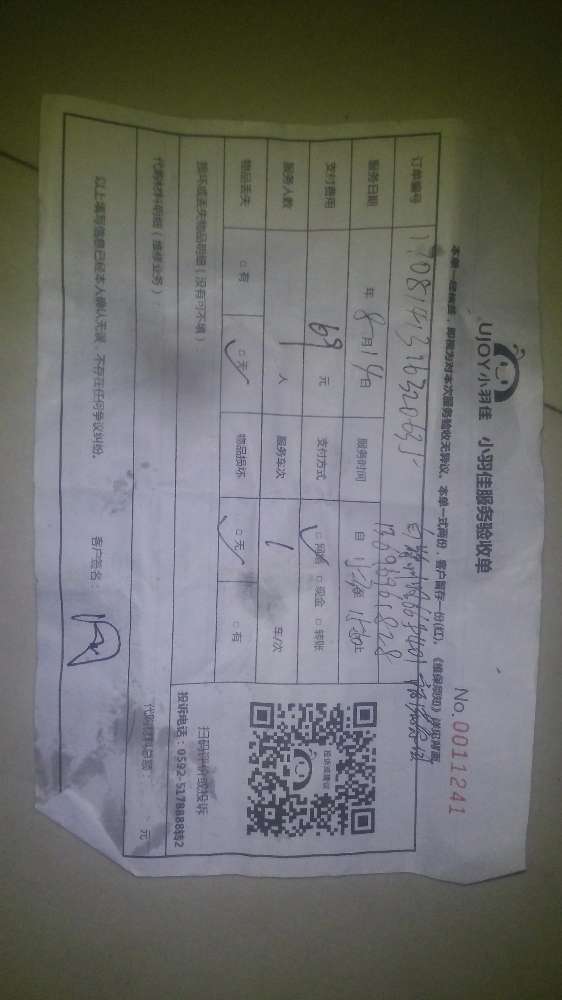 UJOY小羽佳 小羽佳服务验收单
No.0011241
本单一经签署，即视为对本次服务验收无异议。本单一式两份，客户留存一份(红)。
订单编号
13696901828
服务日期 年 8 月 14 日 服务时间 自
支付费用 69 元 支付方式 □网络 □现金 □转账
服务人数 1 人 服务车次 1 车/次
物品丢失 □有 □无 物品损坏 □无 □有
损坏或丢失物品明细（没有可不填）
代购材料明细（维修业务）
代购材料总额： 元
以上填写信息已经本人确认无误，不存在任何争议纠纷。
客户签名：
投诉或建议
扫码评价或投诉
投诉电话：0592-5178888转2